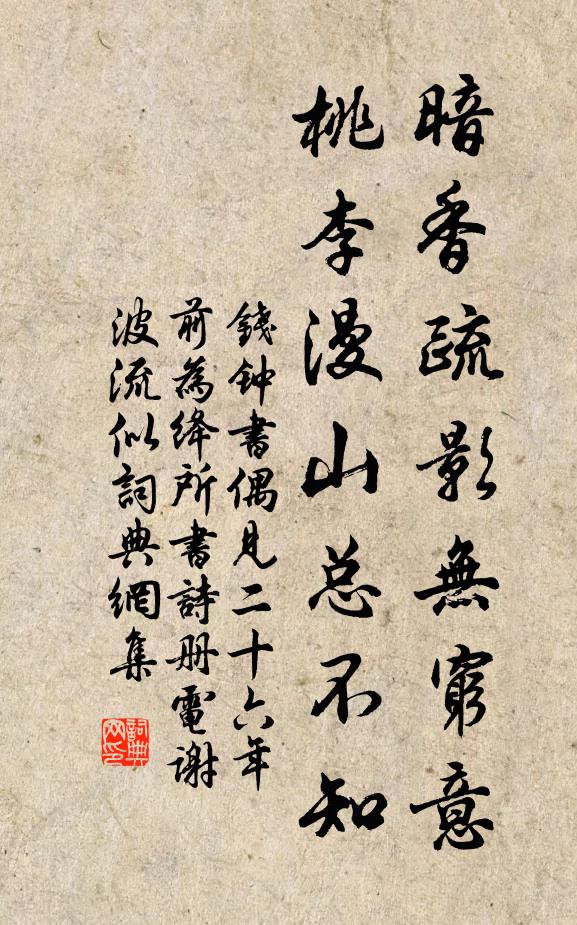 暗香疏影無窮意
桃李漫山总不知
錢钟書偶見二十六年
前為绛所書詩册電謝
波流似詞典網集
詞典
网印